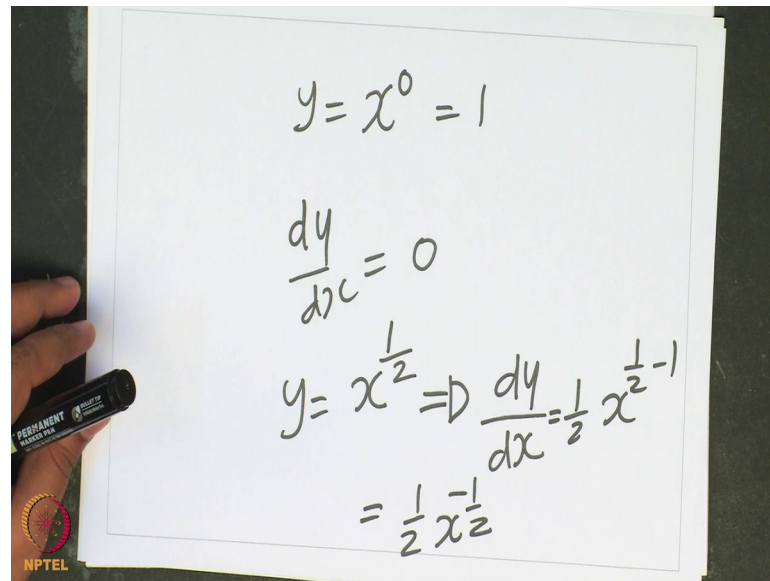 y = x⁰ = 1
dy/dx = 0
y = x^(1/2) ⇒ dy/dx = 1/2 x^(1/2 - 1)
= 1/2 x^(-1/2)
PERMANENT
MARKER PEN
BULLET TIP
NPTEL